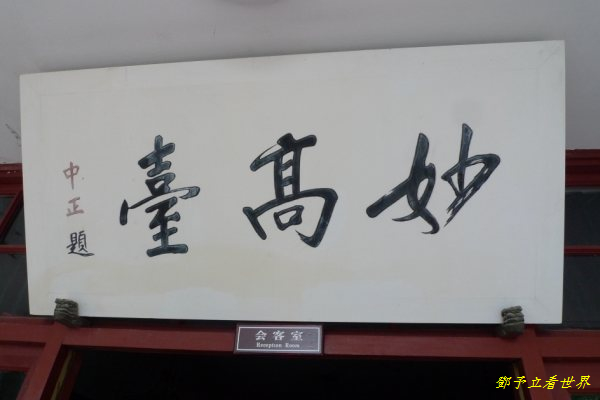 妙高臺
中正題
会客室
Reception Room
鄧予立看世界